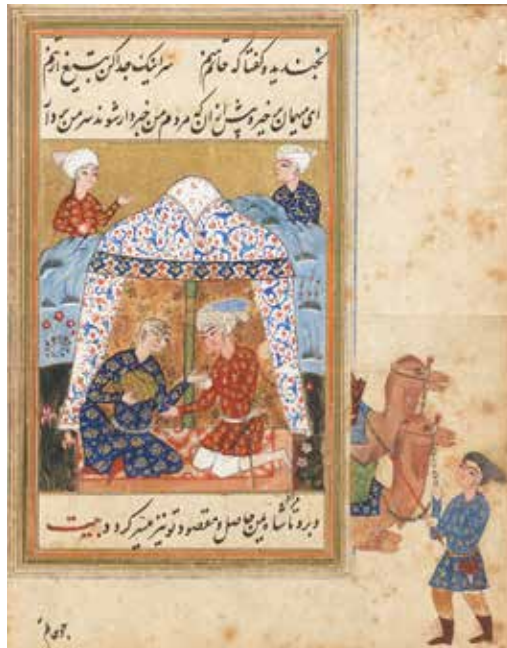 بخندید و گفتا که حاتم منم سر اینک جدا کن بتیغ از تنم
ای مهمان برخیز و پیش از ان که مردم من خبردار شوند سر من بردار
و برو تا شاه من حاصل و مقصود تو نیز میسر کردد بیت